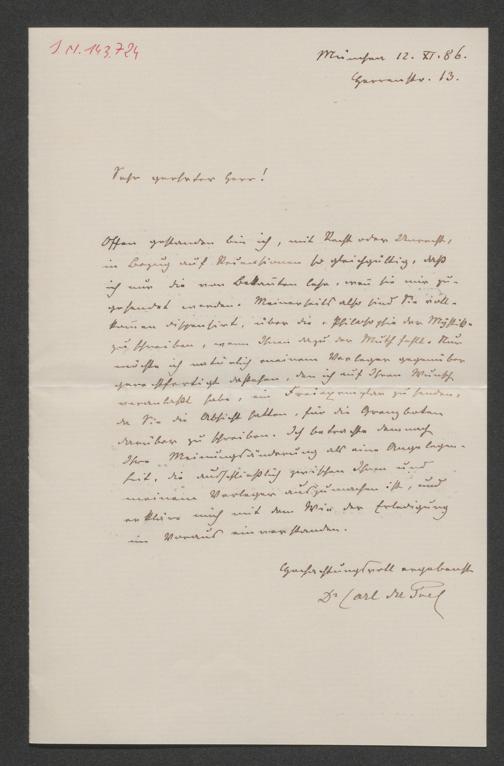 I.N. 143.724
München 12. XI. 86.
Herrenstr. 13.
Sehr geehrter Herr!
Offen gestanden bin ich, mit Recht oder Unrecht,
in Bezug auf Recensionen so gleichgültig, daß
ich nur die von Bekannten lese, wenn sie mir zu-
gesendet werden. Meinerseits also sind Sie voll-
kommen dispensirt, über die "Philosophie der Mystik"
zu schreiben, wenn Ihnen dazu der Muth fehlt. Nur
möchte ich natürlich meinem Verleger gegenüber
gerechtfertigt dastehen, den ich auf Ihren Wunsch
veranlaßt habe, ein Freiexemplar zu senden,
da Sie die Absicht hatten, für die Grenzboten
darüber zu schreiben. Ich betrachte demnach
Ihre Meinungsänderung als eine Angelegen-
heit, die ausschließlich zwischen Ihnen und
meinem Verleger auszumachen ist, und
erkläre mich mit dem Wie der Erledigung
im Voraus einverstanden.
Hochachtungsvoll ergebenst
Dr Carl du Prel